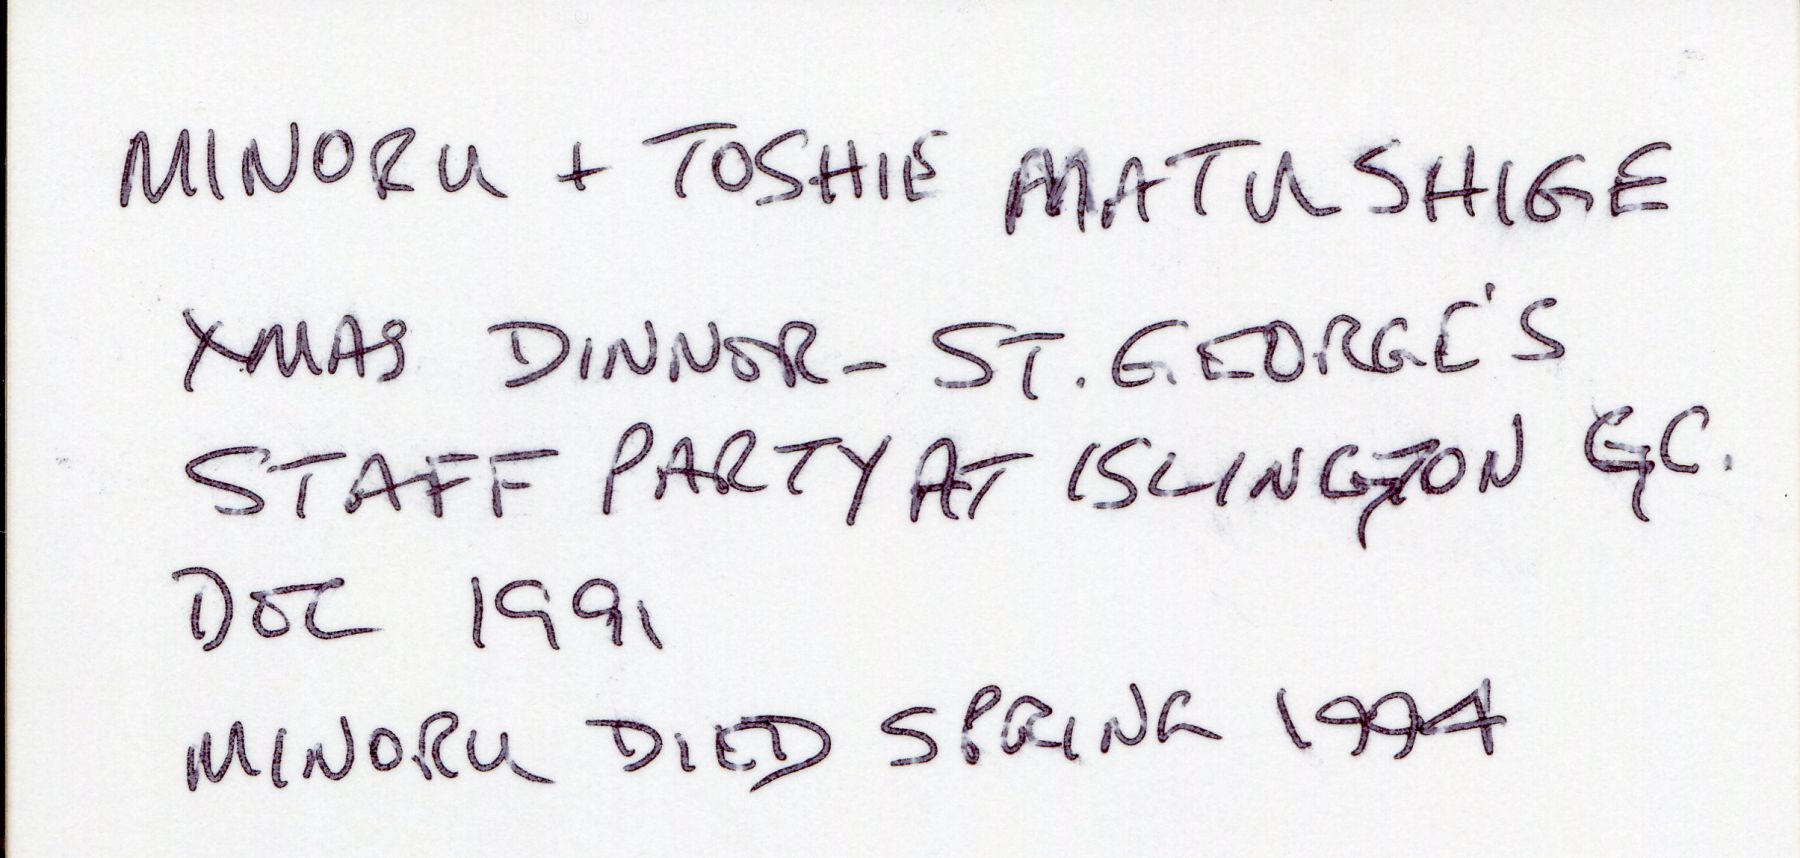 MINORU + TOSHIE MATUSHIGE
XMAS DINNER - ST. GEORGE'S
STAFF PARTY AT ISLINGTON G.C.
DEC 1991
MINORU DIED SPRING 1994